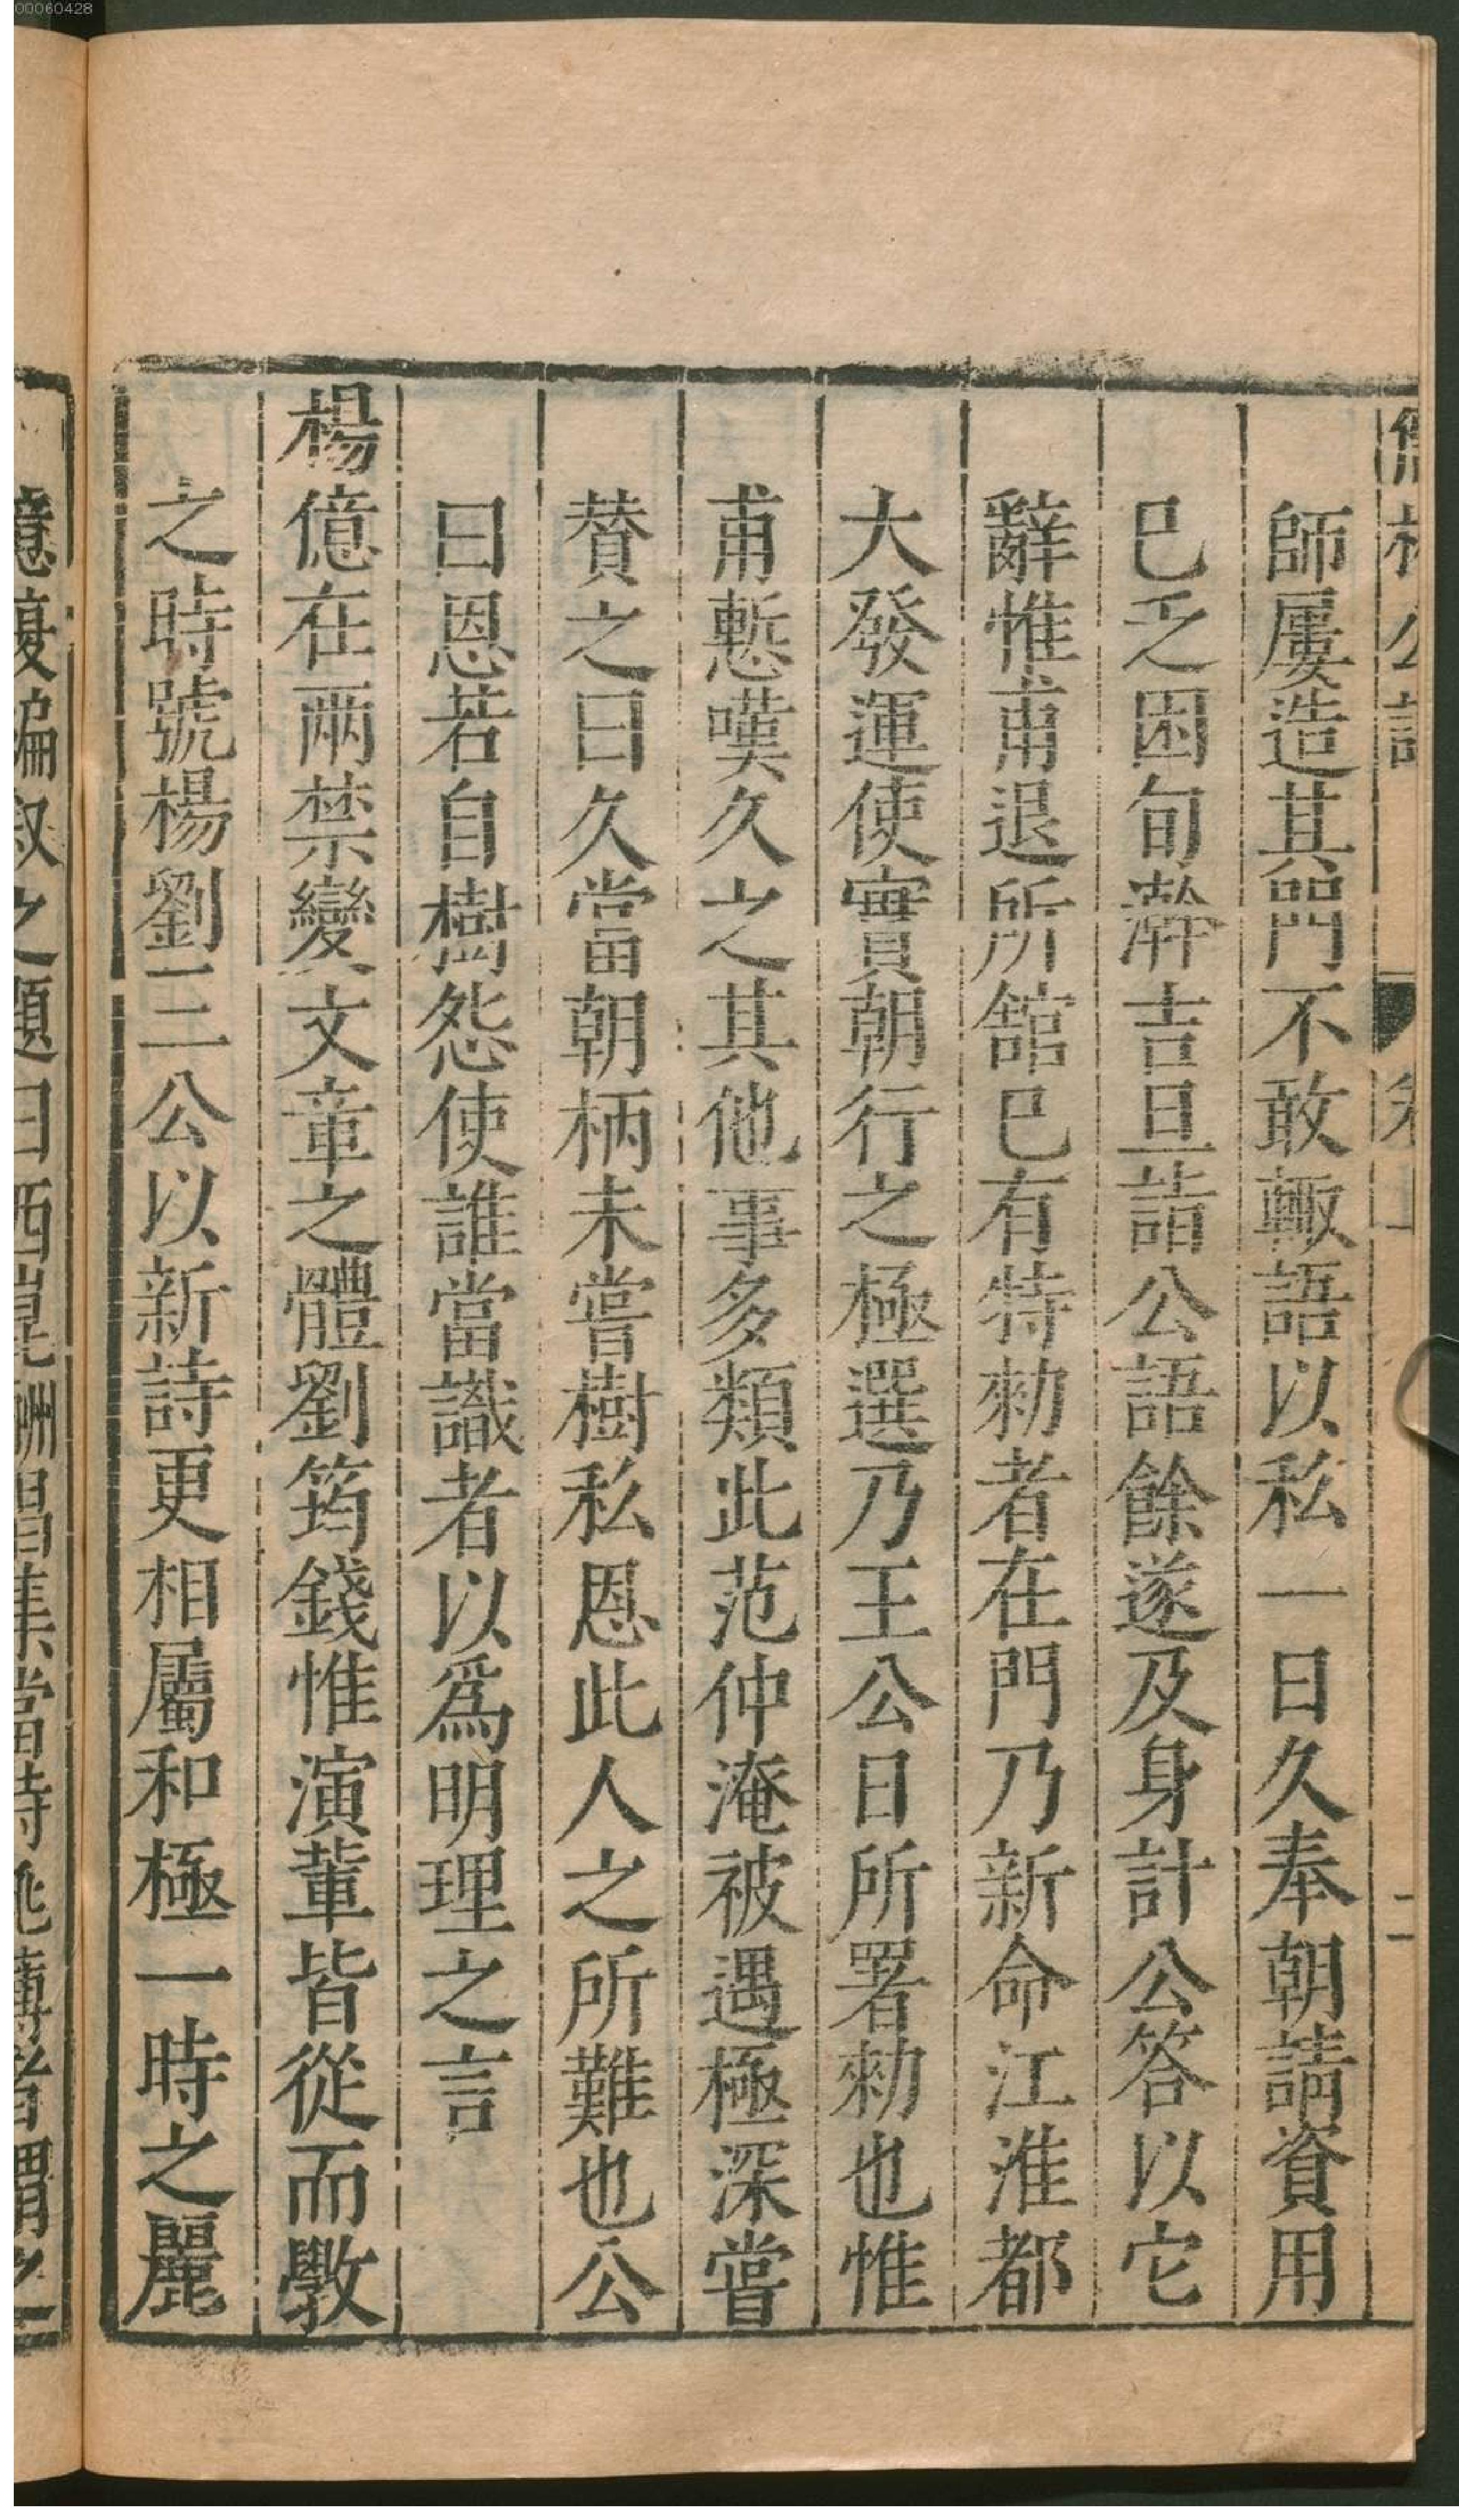 00060428
師屢造其門不敢輙語以私一日久奉朝請資用
已乏困旬澣吉旦詣公語餘遂及身計公答以它
辭惟甫退所舘已有特勑者在門乃新命江淮都
大發運使實朝行之極選乃王公日所署勑也惟
甫慙嘆久之其他事多類此范仲淹被遇極深嘗
賛之曰久當朝柄未嘗樹私恩此人之所難也公
曰恩若自樹怨使誰當識者以爲明理之言
楊億在兩禁變文章之體劉筠錢惟演輩皆從而斆
之時號楊劉三公以新詩更相屬和極一時之麗
億復編叙之題曰西崑酬唱集當時佻薄者謂之